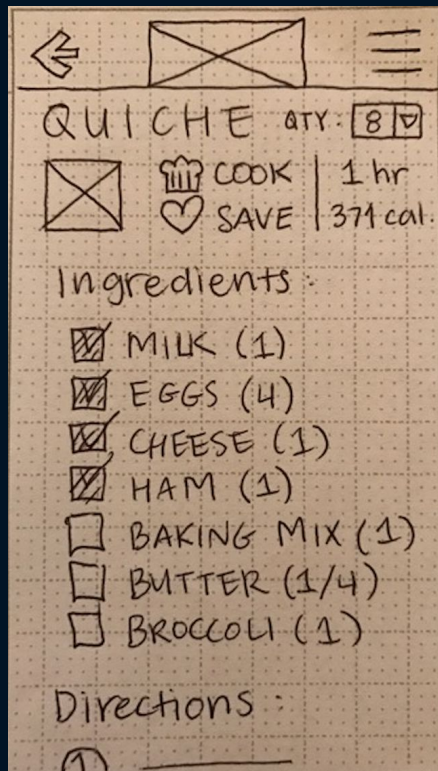 QUICHE QTY: 8
COOK 1 hr
SAVE 371 cal.
Ingredients:
MILK (1)
EGGS (4)
CHEESE (1)
HAM (1)
BAKING MIX (1)
BUTTER (1/4)
BROCCOLI (1)
Directions:
1